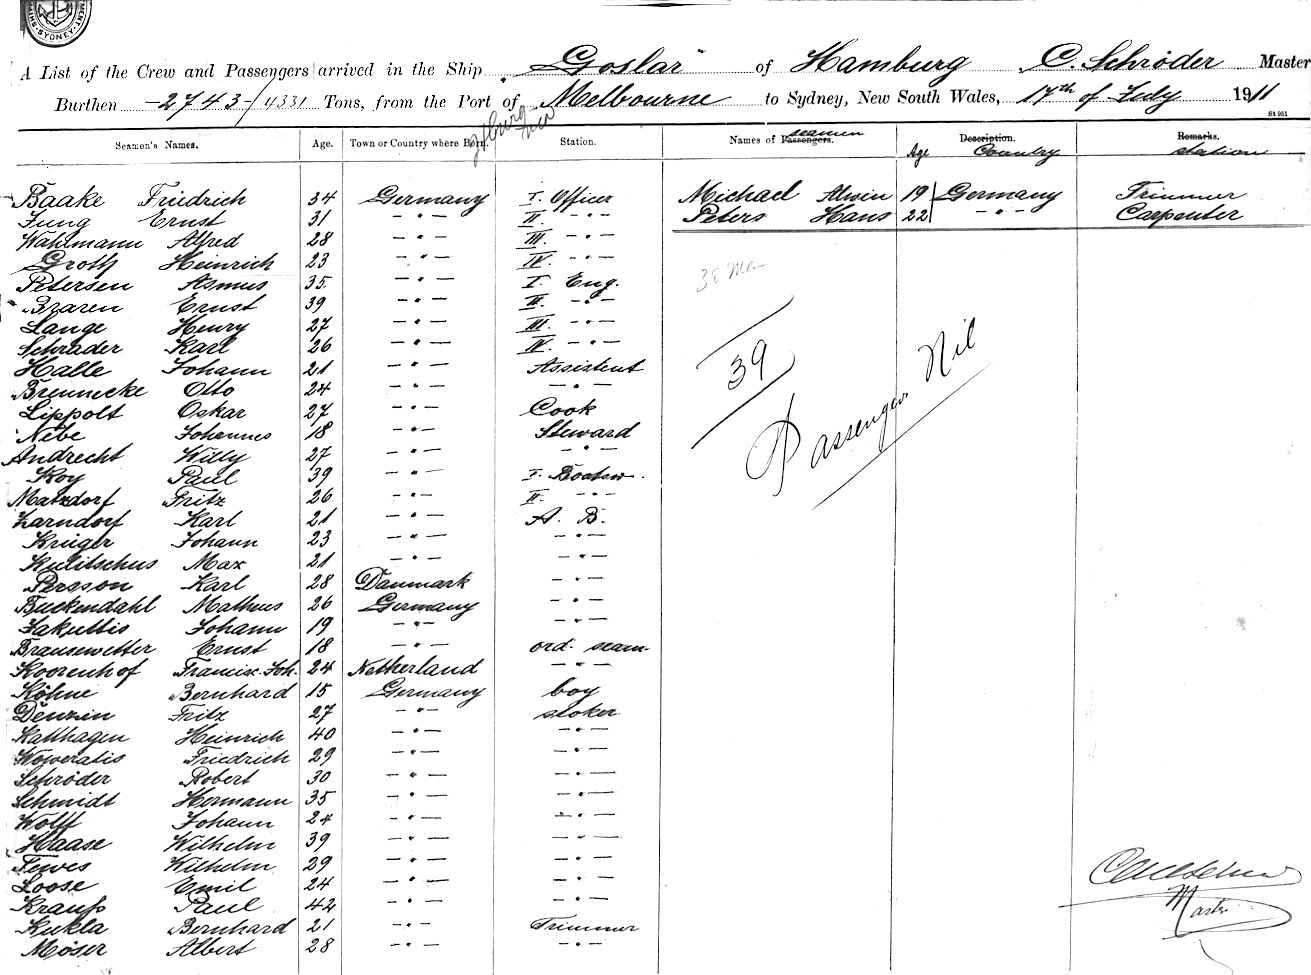 MENT. SYDNEY. SHIP
A List of the Crew and Passengers arrived in the Ship "Goslar" of Hamburg C. Schröder Master
Burthen 2743/4331 Tons, from the Port of Melbourne to Sydney, New South Wales, 17th of July 1911
St 951
Seamen's Names. Age. Town or Country where Born. Station. Names of Passengers. seamen Age Description. Country Remarks. station
Baake Friedrich 34 Germany I. Officer Michael Alwin 19 Germany Trimmer
Jung Ernst 31 -"- II -"- Peters Hans 22 -"- Carpenter
Wahlmann Alfred 28 -"- III. -"-
Groth Heinrich 23 -"- IV. -"-
Petersen Asmus 35. -"- I. Eng.
Braren Ernst 39 -"- II. -"-
Lange Henry 27 -"- III. -"-
Schrader Karl 26 -"- IV. -"-
Halle Johann 21 -"- Assistent
Brennecke Otto 24 -"- -"-
Lippolt Oskar 27 -"- Cook
Nebe Johannes 18 -"- Steward
Andrecht Willy 27 -"- -"-
Roy Paul 39 -"- I. Boatsw.
Matzdorf Fritz 26 -"- II. -"-
Zarndorf Karl 21 -"- A. B.
Krüger Johann 23 -"- -"-
Kulitschus Max 21 -"- -"-
Persson Karl 28 Danmark -"-
Buckendahl Matheus 26 Germany -"-
Jakuttis Johann 19 -"- -"-
Brausewetter Ernst 18 -"- ord. seam.
Koorenhof Francisc. Joh. 24 Netherland -"-
Köhne Bernhard 15 Germany boy
Denzin Fritz 27 -"- stoker
Katthagen Heinrich 40 -"- -"-
Woweratis Friedrich 29 -"- -"-
Schröder Robert 30 -"- -"-
Schmidt Hermann 35 -"- -"-
Wolff Johann 24 -"- -"-
Haase Wilhelm 39 -"- -"-
Tewes Wilhelm 29 -"- -"-
Loose Emil 24 -"- -"-
Krauß Paul 42 -"- -"-
Kukla Bernhard 21 -"- Trimmer
Möser Albert 28 -"- -"-
38 Men
39
Passengers Nil
Master